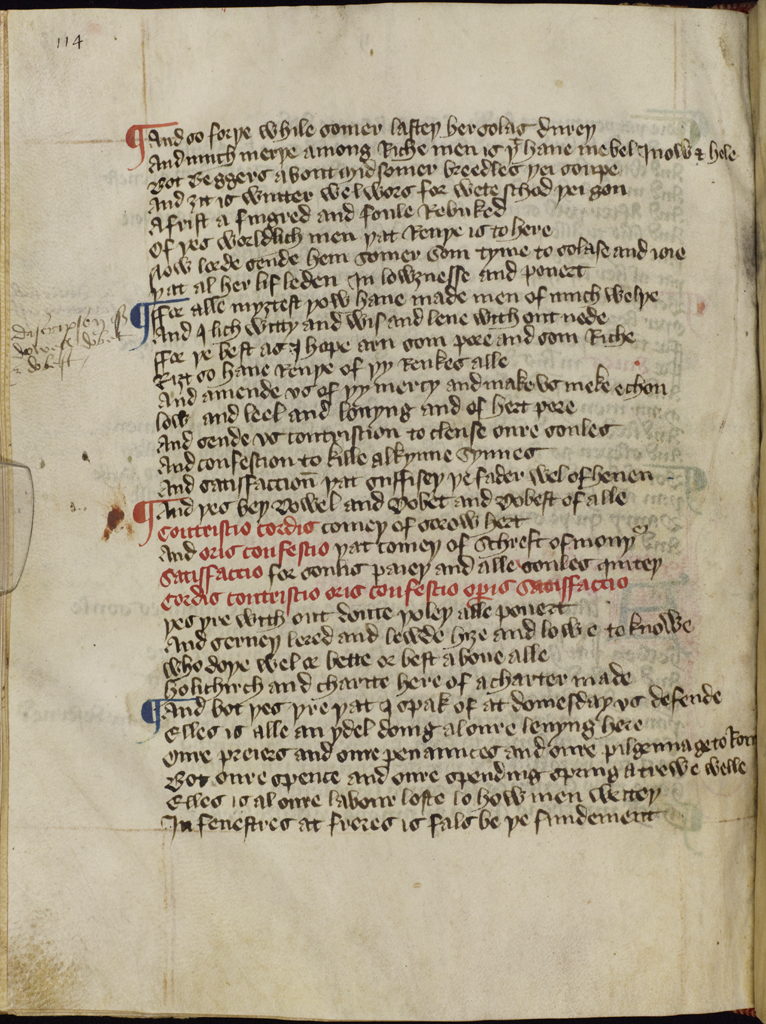 114
And so forye while somer lastey her solas durey
And much merye among Riche men is yt haue mebel Inow & hele
Bot Beggers about mid somer breedles yei soupe
And зit is wynter wel wors for wete schod yei gon
A frist a fingred and foule Rebuked
Of yes worldlich men yat Reuye is to here
Now lorde sende hem somer som tyme to solase and ioie
yat al her lif leden In lowзnesse and pouert
For alle myзtest yow haue made men of much welye
And I lich witty and wis and leue with out nede
For ye best as I hope arn som pore and som Riche
Riзt so haue Reuye of yy Renkes alle
And amende vs of yy mercy and make vs meke echon
low and leel and louyng and of hert pore
And sende vs contristion to clense oure soules
And confestion to kille alkynne synnes
And satisfaction yat suffisey ye fader wel of heuen
And yes bey Dowel and Dobet and Dobest of alle
Contristio cordis comey of sorow hert
And oris confestio yat comey of schreft of mouy
Satisfactio for sonus paiey and alle soules quitey
Cordis contristio oris confestio operis satisfactio
yes yre with out doute yoley alle pouert
And lerney lered and lewde hiзe and lowe to knowe
who doye wel or bette or best aboue alle
holi chirch and charite here of a charter made
And bot yes yre yat I spak of at domesday vs defende
Elles is alle an ydel doing al oure leuyng here
Oure preiers and oure penaunces and oure pilgrimage to Rom
Bot oure spence and oure spending spring a trewe welle
Elles is al oure labour loste lo how men writey
In fenestres at freres is fals be ye fundement
dowel dobet
& dobest